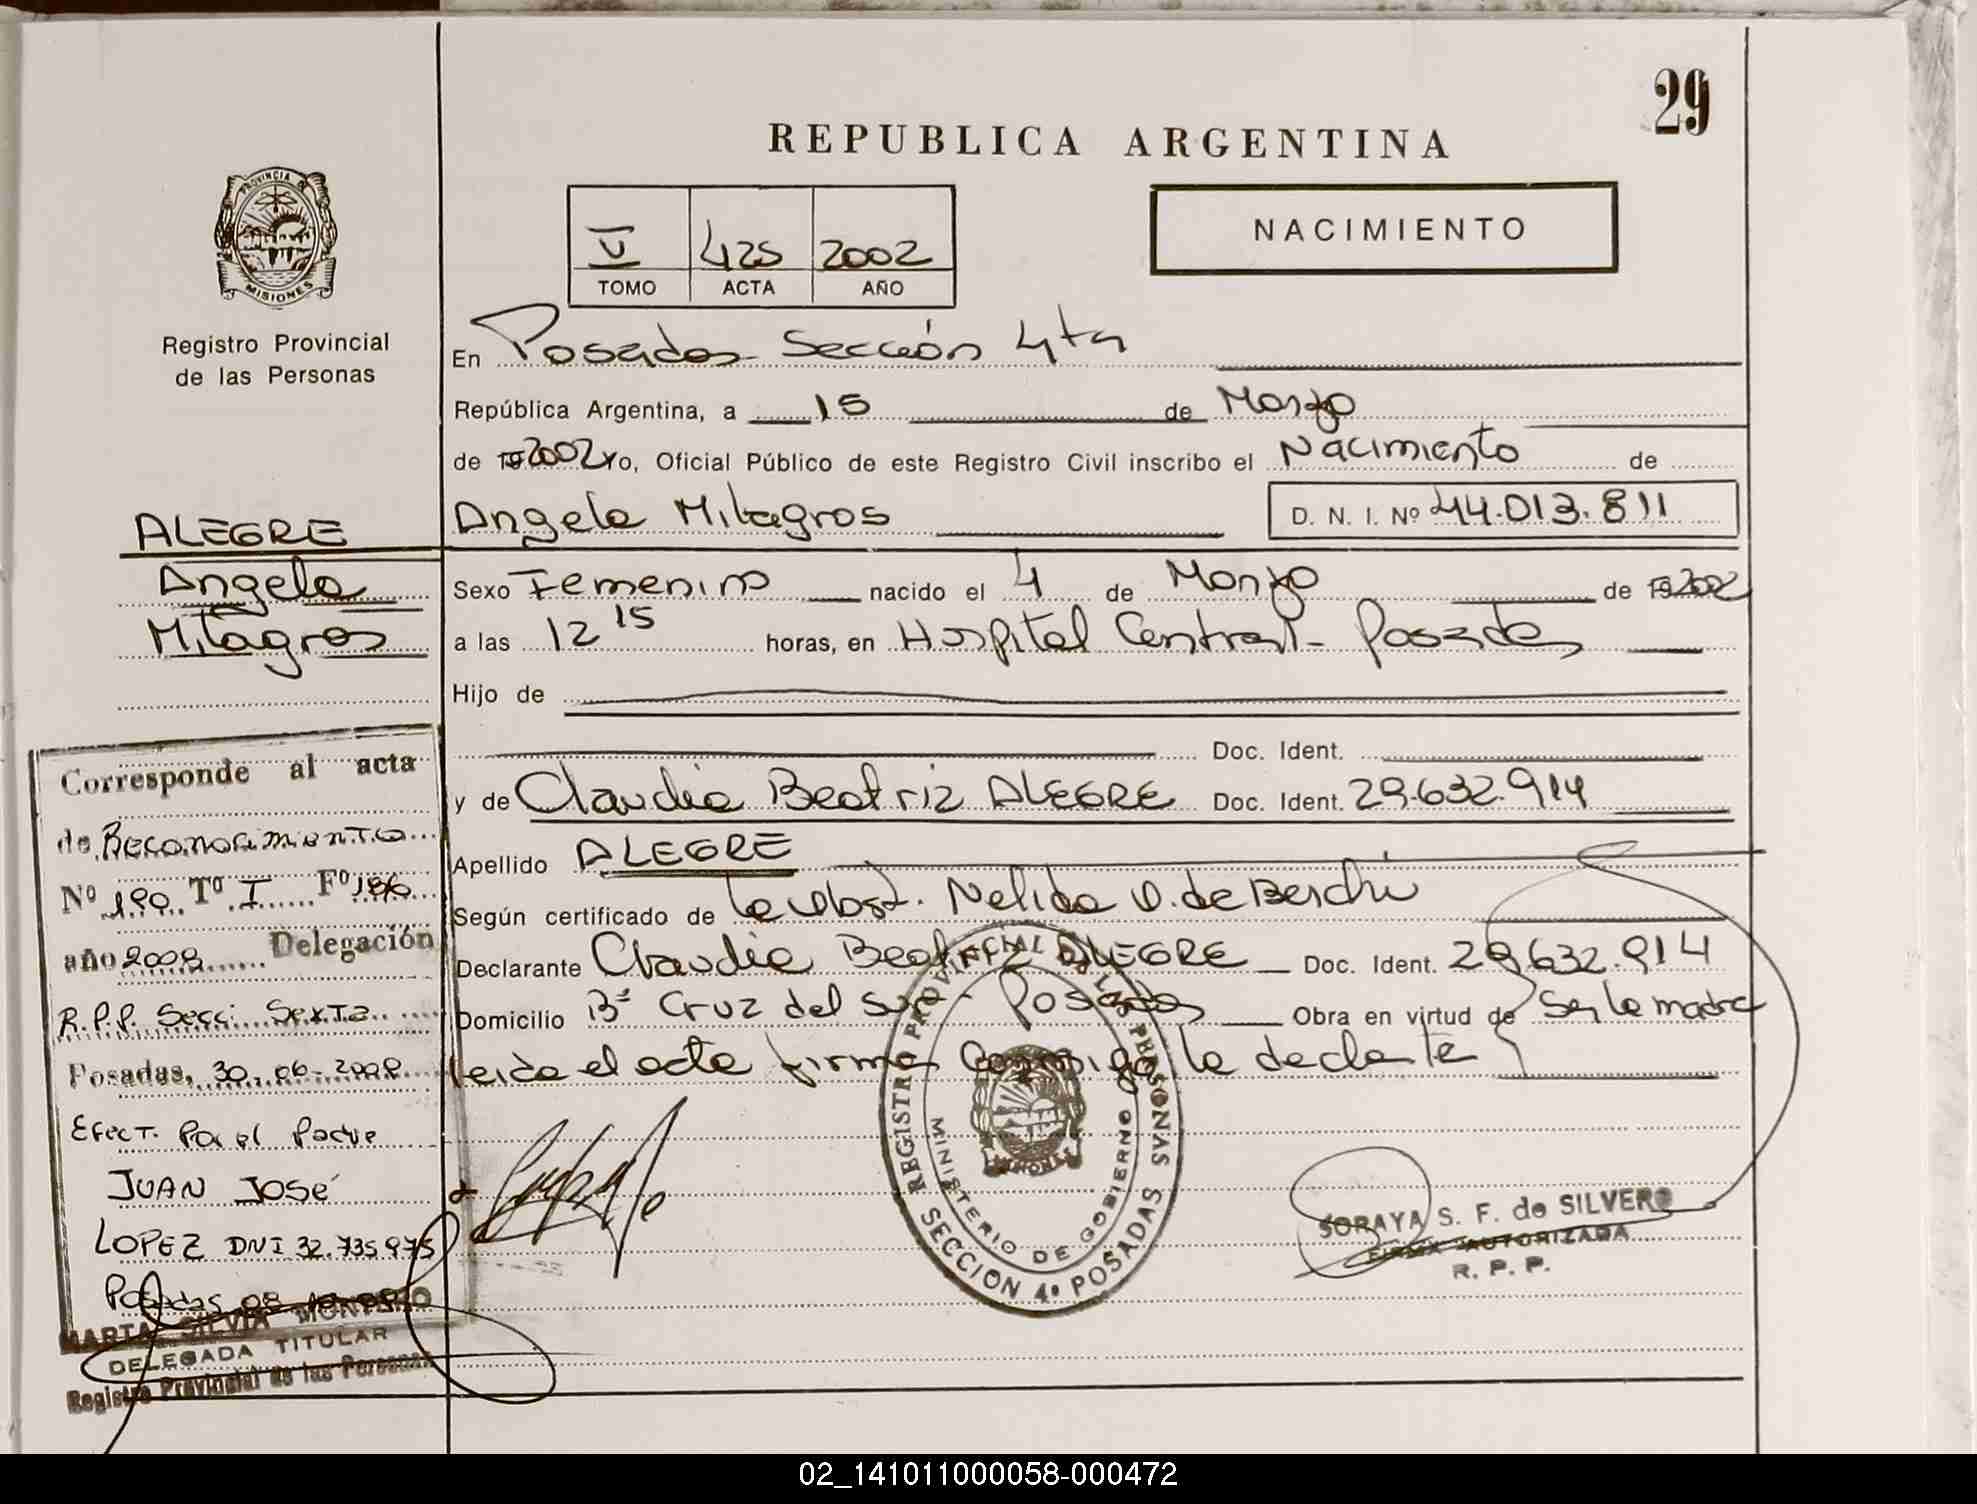 29
REPUBLICA ARGENTINA
PROVINCIA DE
MISIONES
Registro Provincial
de las Personas
V 425 2002
TOMO ACTA AÑO
NACIMIENTO
En Posadas Sección 4ta
República Argentina, a 15 de Marzo
de 19 2002 Yo, Oficial Público de este Registro Civil inscribo el Nacimiento de
Angela Milagros D. N. I. Nº 44.013.811
ALEGRE
Angela
Milagros
Sexo Femenino nacido el 4 de Marzo de 19 2002
a las 12 15 horas, en Hospital Central - Posadas
Hijo de
Doc. Ident.
y de Claudia Beatriz ALEGRE Doc. Ident. 29.632.914
Apellido ALEGRE
Según certificado de la Obst. Nelida de
Declarante Claudia Beatriz ALEGRE Doc. Ident. 29.632.914
Domicilio Bº Cruz del Sur - Posadas Obra en virtud de Ser la madre
leida el acta firma conmigo la declante
Corresponde al acta
de Reconocimiento
Nº 190 Tº I Fº 186
año 2008 Delegación
R.P.P. Secc. Sexta
Posadas, 30.06-2008
Efect. Por el Padre
JUAN JOSÉ
LOPEZ DNI 32.735.975
Posadas 08
MARTA SILVIA
DELEGADA TITULAR
Registro Provincial de las Personas
REGISTRO PROVINCIAL DE LAS PERSONAS
MINISTERIO DE GOBIERNO
MISIONES
SECCION 4ª POSADAS
SORAYA S. F. de SILVERO
FIRMA AUTORIZADA
R. P. P.
02_141011000058-000472